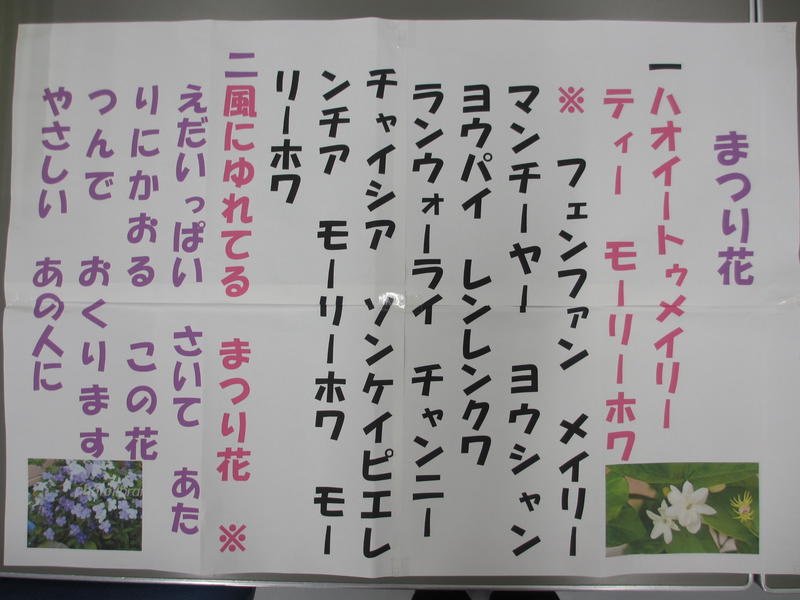 まつり花
一ハオイートゥメイリー
ティー　モーリーホワ
※　フェンファン　メイリー
マンチーヤー　ヨウシャン
ヨウパイ　レンレンクワ
ランウォーライ　チャンニー
チャイシア　ソンケイピエレ
ンチア　モーリーホワ　モー
リーホワ
二風にゆれてる　まつり花　※
えだいっぱい　さいて　あた
りにかおる　この花
つんで　おくります
やさしい　あの人に